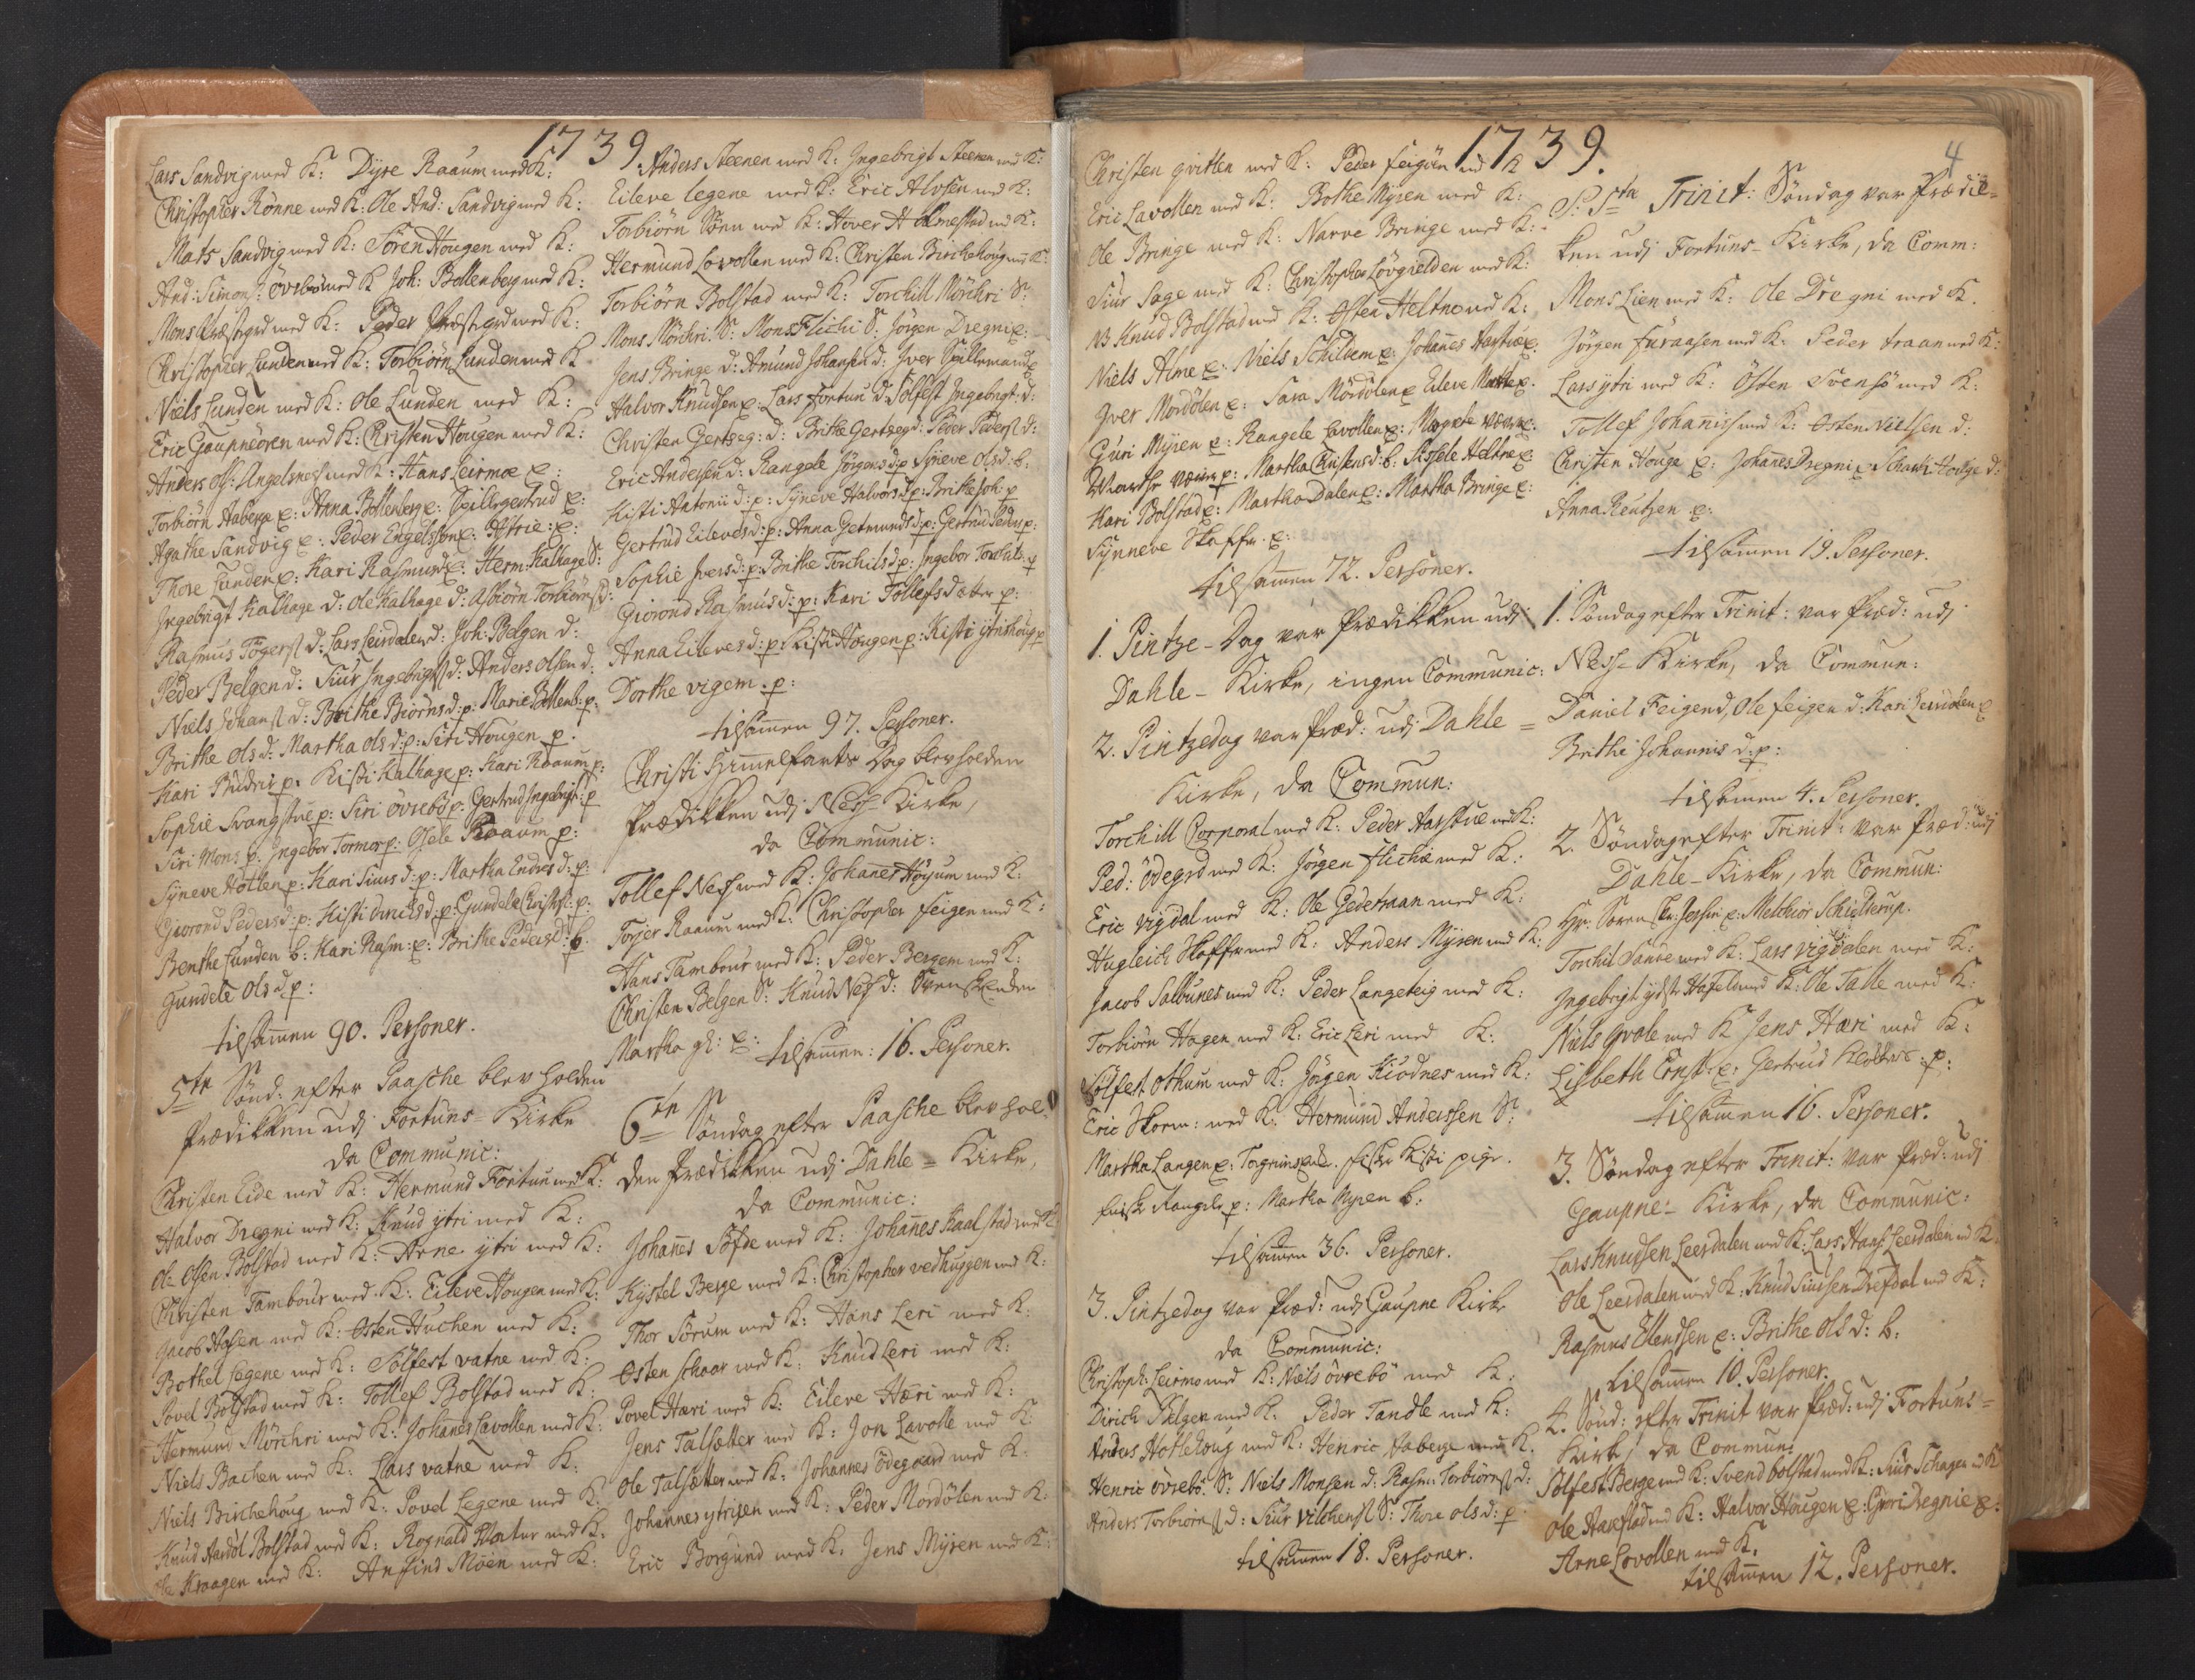 1739
Lars Sandvig med K: Dyre Raaum med K:
Christopher Rönne med K: Ole And: Sandvig med K:
Mats Sandvig med K: Sören Hougen med K:
And: Simons: övrbö med K Joh: Bollenberg med K:
Mons Præstegrd med K: Peder Præstegrd med K:
Christopher Lunden med K: Torbiörn Lunden med K
Niels Lunden med K: Ole Lunden med K:
Eric Gaupneören med K: Christen Hougen med K:
Anders Ols: Angelsnes med K: Hans Leirmœ E:
Torbiörn Aaberge E: Anna Bollenberg E: gertrud E:
Agathe Sandvig E: Peder Engelssön E: E:
Thore Lunden E: Kari Rasmusd E: Herm: Kalhage S:
Ingebrigt Kalhage d: Ole Kalhage d: Asbiörn Torbiörns d:
Rasmus d: Lars Leirdalen d: Joh: Bolgen d:
Peder Bolgen d: Siur Ingebrigts d: Anders Olsen d:
Niels Johans d: Brithe Biörns d: p: Marie Bollenb: p:
Brithe Ols d: Martha Ols d: p: Siri Hougen p:
Kari p: Kisti Kalhage p: Kari Raaum p:
Sophie p: Siri övrebö p: Gertrud Ingebrigts: p
Siri Mons p: Ingebor Tormor p: Osele Raaum p:
Syneve p: Kari Siurs d: p: Martha Endres d: p:
Giorond Peders d: p: Kisti d: p: Gundele Christs: p:
Benthe Lunden b: Kari Rasm: E: Brithe Peders d: b.
Gundele Ols d p:
tilsamen 90. Personer.
5te Sönd: efter Paasche blev holden
Prædikken udj Fortuns-Kirke
da Communic:
Christen Eide med K: Hermund Fortun med K:
Halvor Dregni med K: Knud ytri med K:
Ole Olsen Bolstad med K: Arne ytri med K:
Christen Tambour med K: Eileve Hougen med K:
Jacob med K: Osten Huchen med K:
Bothel Legene med K: Sölfest vatne med K:
Povel Bolstad med K: Tollef Bolstad med K:
Hermund Mörchri med K: Johanes Lavollen med K:
Niels Bachen med K: Lars vatne med K:
Niels Birchehoug med K: Povel Legene med K:
Knud Bolstad med K: Rognald med K:
Ole Kraagen med K: Anfind Möen med K:
Anders Steenen med K: Ingebrigt Steenen med K:
Eileve legene med K: Eric Alvsen med K:
Torbiörn med K: Hover med K:
Hermund Lavollen med K: Christen Birchehoug med K
Torbiörn Bolstad med K: Torchill Mörchri S:
Mons Mörchri S: Mons Flichi S: Jörgen Dregni E:
Jens Bringe d: Amund Johansen d: Iver Spillemand E
Halvor Knudsen E: Lars Fortun d: Sölfest Ingebrigt: d:
Christen d: Brithe d: Peder Peders d:
Eric Andersen d: Rangele Jörgens d: p Syneve Ols d: b:
Kisti Antonii d: p: Syneve Halvors d p: Brithe Joh: p
Gertrud Eileves d: p: Anna d p: Gertrud Peders p:
Sophie Ivers d: p: Brithe Torchils d p: Ingebor Torchils: p
Giorond Rasmus d: p: Kari Tollefs datter p:
Anna Eileves d: p: Kisti Hougen p: Kisti p
Dorthe vigem. p:
tilsamen 97. Personer.
Christi Himmelfarts Dag blev holden
Prædikken udj Ness Kirke,
da Communic:
Tollef Ness med K: Johanes Höyum med K:
Torjer Raaum med K: Christopher feigen med K:
Hans Tambour med K: Peder Bergem med K:
Christen Belgen S: Knud Ness d:
Martha E: tilsamen: 16. Personer.
6te Söndag efter Paasche blev hol-
den Prædikken udj Dahle-Kirke,
da Communic:
Johanes Söfde med K: Johanes Kaalstad med K
Kystel Berge med K: Christopher vedhuggen med K:
Thor Sörum med K: Hans Leri med K:
Osten Schaar med K: Knud Leri med K:
Povel Hæri med K: Eileve Hæri med K:
Jens Talsetter med K: Jon Lavolle med K
Ole Talsetter med K: Johannes ödegaard med K:
Johannes ytrisen med K: Peder Mordölen med K:
Eric Borgund med K: Jens Myren med K:
1739.
4
Christen qvitlen med K: Peder feigen med K
Eric Lavollen med K: Bothe Myren med K:
Ole Bringe med K: Narve Bringe med K:
Siur Sage med K: Christopher Lövgielden med K:
NB Knud Bolstad med K: Osten Heltne med K:
Niels Alme E: Niels Schildem E: Johanes E:
Iver Mordölen E: Sara Mordölen E Eileve E:
Guri Myren E: Rangele Lavollen E: E:
p: Martha Christens d: b: Sissele Heltne E:
Kari Bolstad E: Martha Dalen E: Martha Bringe E:
Synneve Skaffer. E:
tilsamen 72. Personer.
1. Pintze-Dag var Prædikken udj
Dahle-Kirke, ingen Communic:
2. Pintzedag var Præd: udj Dahle=
Kirke, da Commun:
Torchill Corporal med K: Peder med K:
Ped: ödegrd med K: Jörgen flichie med K:
Eric vigdal med K: Ole Gederaan med K:
Hugleich Skaffer med K: Anders Myren med K:
Jacob Salbunes med K: Peder Langeteig med K:
Torbiörn Hagen med K: Eric Leri med K:
Sölfest Othum med K: Jörgen Kiodnes med K:
Eric Skorm: med K: Hermund Anderssen S:
Martha Langen E: Kisti pige.
Rangele p: Martha Myren b:
tilsamen 36. Personer.
3. Pintzedag var Præd: udj Gaupne Kirke
da Communic:
Christoph: Leirmo med K: Niels övrebö med K:
Dirich Bolgen med K: Peder Tandle med K:
Anders med K: Henric Aaberge med K.
Henric övrebö S: Niels Monsen d: Rasm: Torbiörns d:
Anders Torbiörns d: Siur S: Thore Ols d: p
tilsamen 18. Personer.
S: Sta Trinit: Söndag var Prædik-
ken udj Fortuns-Kirke, da Comm:
Mons Lien med K: Ole Dregni med K.
Jörgen furaasen med K: Peder traan med K:
Lars ytri med K: Östen Svensö med K:
Tollef Johanis med K: Osten Nielsen d:
Christen Houge E: Johanes Dregni E Houge d:
Anna Reutzen E:
tilsamen 19. Personer.
1. Söndag efter Trinit: var Præd: udj
Ness-Kirke, da Commun:
Daniel Feigen d, Ole feigen d: Kari Leirdalen E
Brithe Johannis d: p:
tilsamen 4. Personer.
2. Söndag efter Trinit: var Præd: udj
Dahle-Kirke, da Commun:
Hr: Sören E: Melchior Schielderup.
Torchil Sande med K: Lars vigdalen med K:
Ingebrigt med K: Ole Talle med K:
Niels Qvale med K Jens Hæri med K:
Lisbeth E: Gertrud p:
tilsamen 16. Personer.
3. Söndag efter Trinit: var Præd: udj
Gaupne-Kirke, da Communic:
Lars Knudsen Leerdalen med K: Lars Hans: Leerdalen med K
Ole Leerdalen med K: Knud Siursen med K:
Rasmus Ellendsen E: Brithe Ols d: b:
tilsamen 10. Personer.
4. Sönd: efter Trinit var Præd: udj Fortuns=
Kirke, da Commun:
Sölfest Berge med K: Svend bolstad med K: Siur Schagen med K
Ole med K: Halvor Hougen E: Guri Dregnie E:
Arne Lavollen med K.
tilsamen 12. Personer.